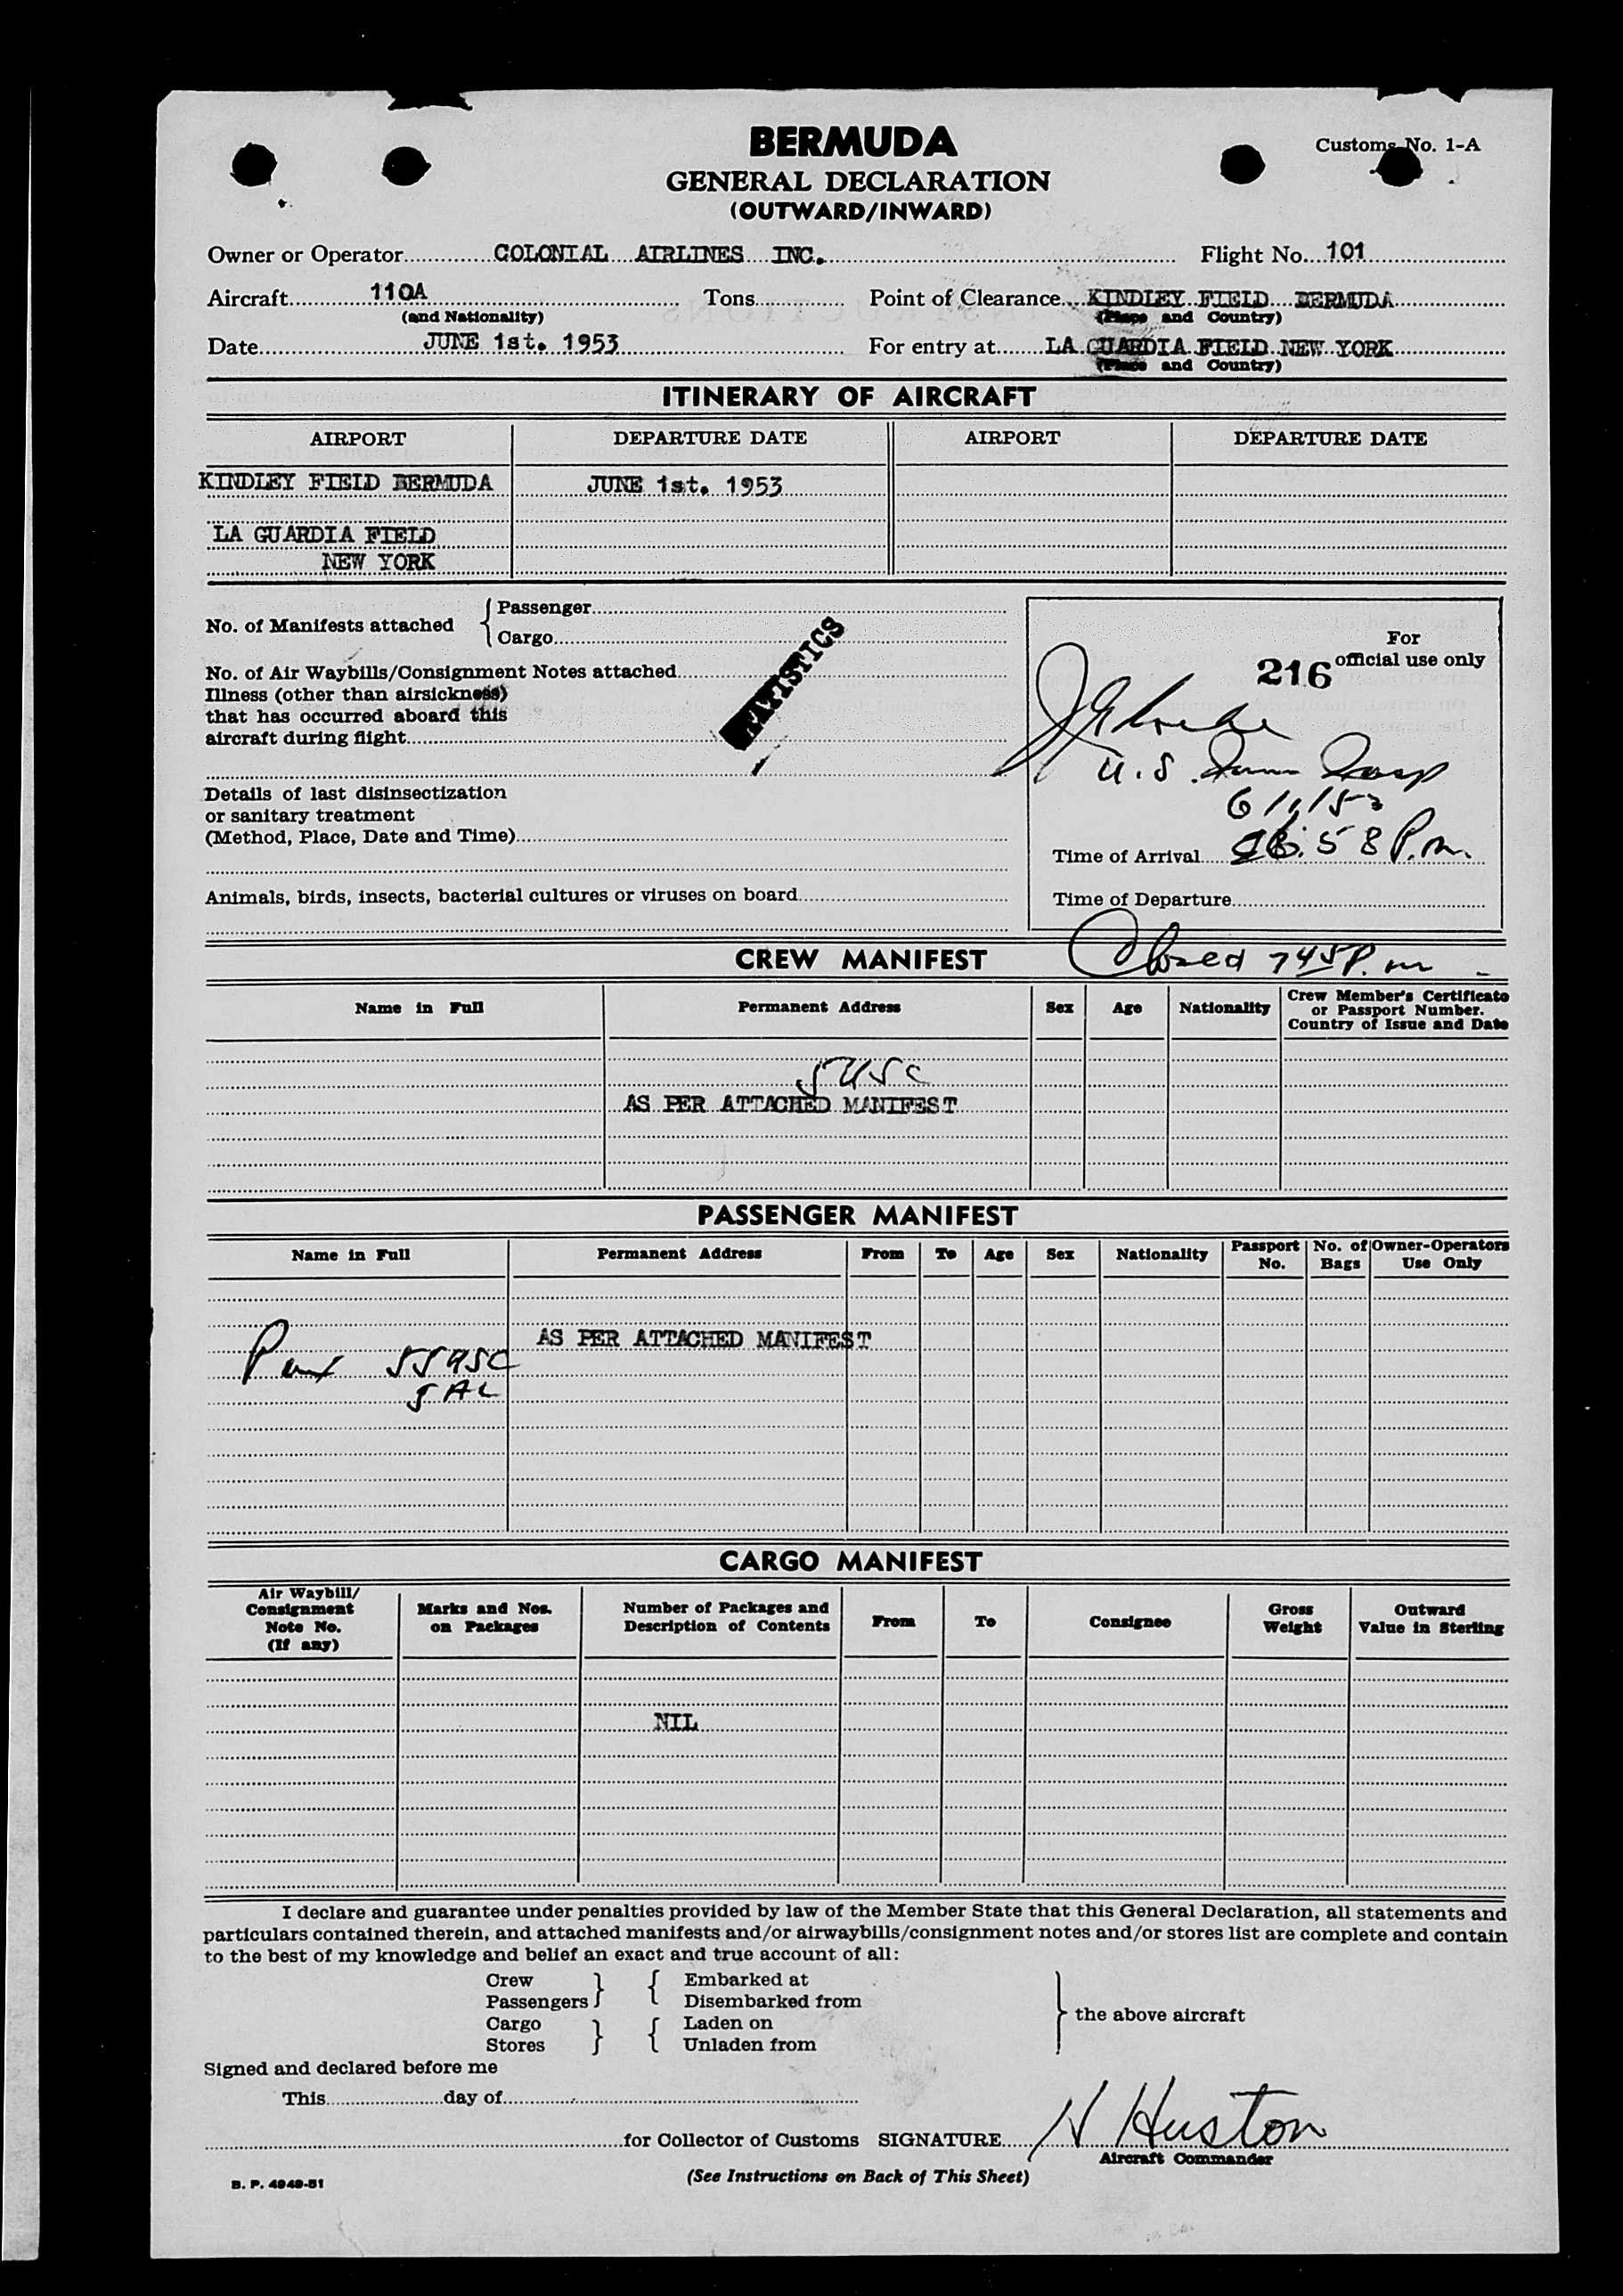 BERMUDA
Customs No. 1-A
GENERAL DECLARATION
(OUTWARD/INWARD)
Owner or Operator COLONIAL AIRLINES INC. Flight No. 101
Aircraft 110A Tons Point of Clearance KINDLEY FIELD BERMUDA
(and Nationality) (Place and Country)
Date JUNE 1st. 1953 For entry at LA GUARDIA FIELD NEW YORK
(Place and Country)
ITINERARY OF AIRCRAFT
AIRPORT DEPARTURE DATE AIRPORT DEPARTURE DATE
KINDLEY FIELD BERMUDA JUNE 1st. 1953
LA GUARDIA FIELD
NEW YORK
No. of Manifests attached { Passenger
Cargo
No. of Air Waybills/Consignment Notes attached
Illness (other than airsickness)
that has occurred aboard this
aircraft during flight
STATISTICS
Details of last disinsectization
or sanitary treatment
(Method, Place, Date and Time)
Animals, birds, insects, bacterial cultures or viruses on board
For
216 official use only
U.S.
6/1/53
Time of Arrival 6:58 P.m.
Time of Departure
Closed 745 P.m
CREW MANIFEST
Name in Full Permanent Address Sex Age Nationality Crew Member's Certificate
or Passport Number.
Country of Issue and Date
5 USC
AS PER ATTACHED MANIFEST
PASSENGER MANIFEST
Name in Full Permanent Address From To Age Sex Nationality Passport No. No. of Bags Owner-Operators Use Only
AS PER ATTACHED MANIFEST
Pax 55 USC
5 AL
CARGO MANIFEST
Air Waybill/
Consignment
Note No.
(If any)
Marks and Nos.
on Packages
Number of Packages and
Description of Contents
From To Consignee
Gross
Weight
Outward
Value in Sterling
NIL
I declare and guarantee under penalties provided by law of the Member State that this General Declaration, all statements and
particulars contained therein, and attached manifests and/or airwaybills/consignment notes and/or stores list are complete and contain
to the best of my knowledge and belief an exact and true account of all:
Crew } { Embarked at
Passengers Disembarked from
Cargo } { Laden on
Stores Unladen from
} the above aircraft
Signed and declared before me
This day of
for Collector of Customs SIGNATURE H Huston
Aircraft Commander
B. P. 4949-51
(See Instructions on Back of This Sheet)